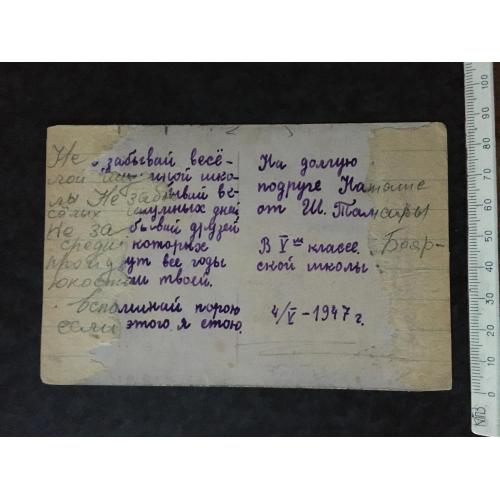 Не забывай весё-
лой шумной шко-
лы Не забывай ве-
сёлых шумных дней
Не забывай друзей
среди которых
пройдут все годы
юности твоей.
Вспоминай порою
если этого я стою.
На долгую
подруге Наташе
от Ш. Тамары
В V ш классе. Бояр-
ской школы
4/V-1947 г.
0
10
20
30
40
50
60
70
80
90
100